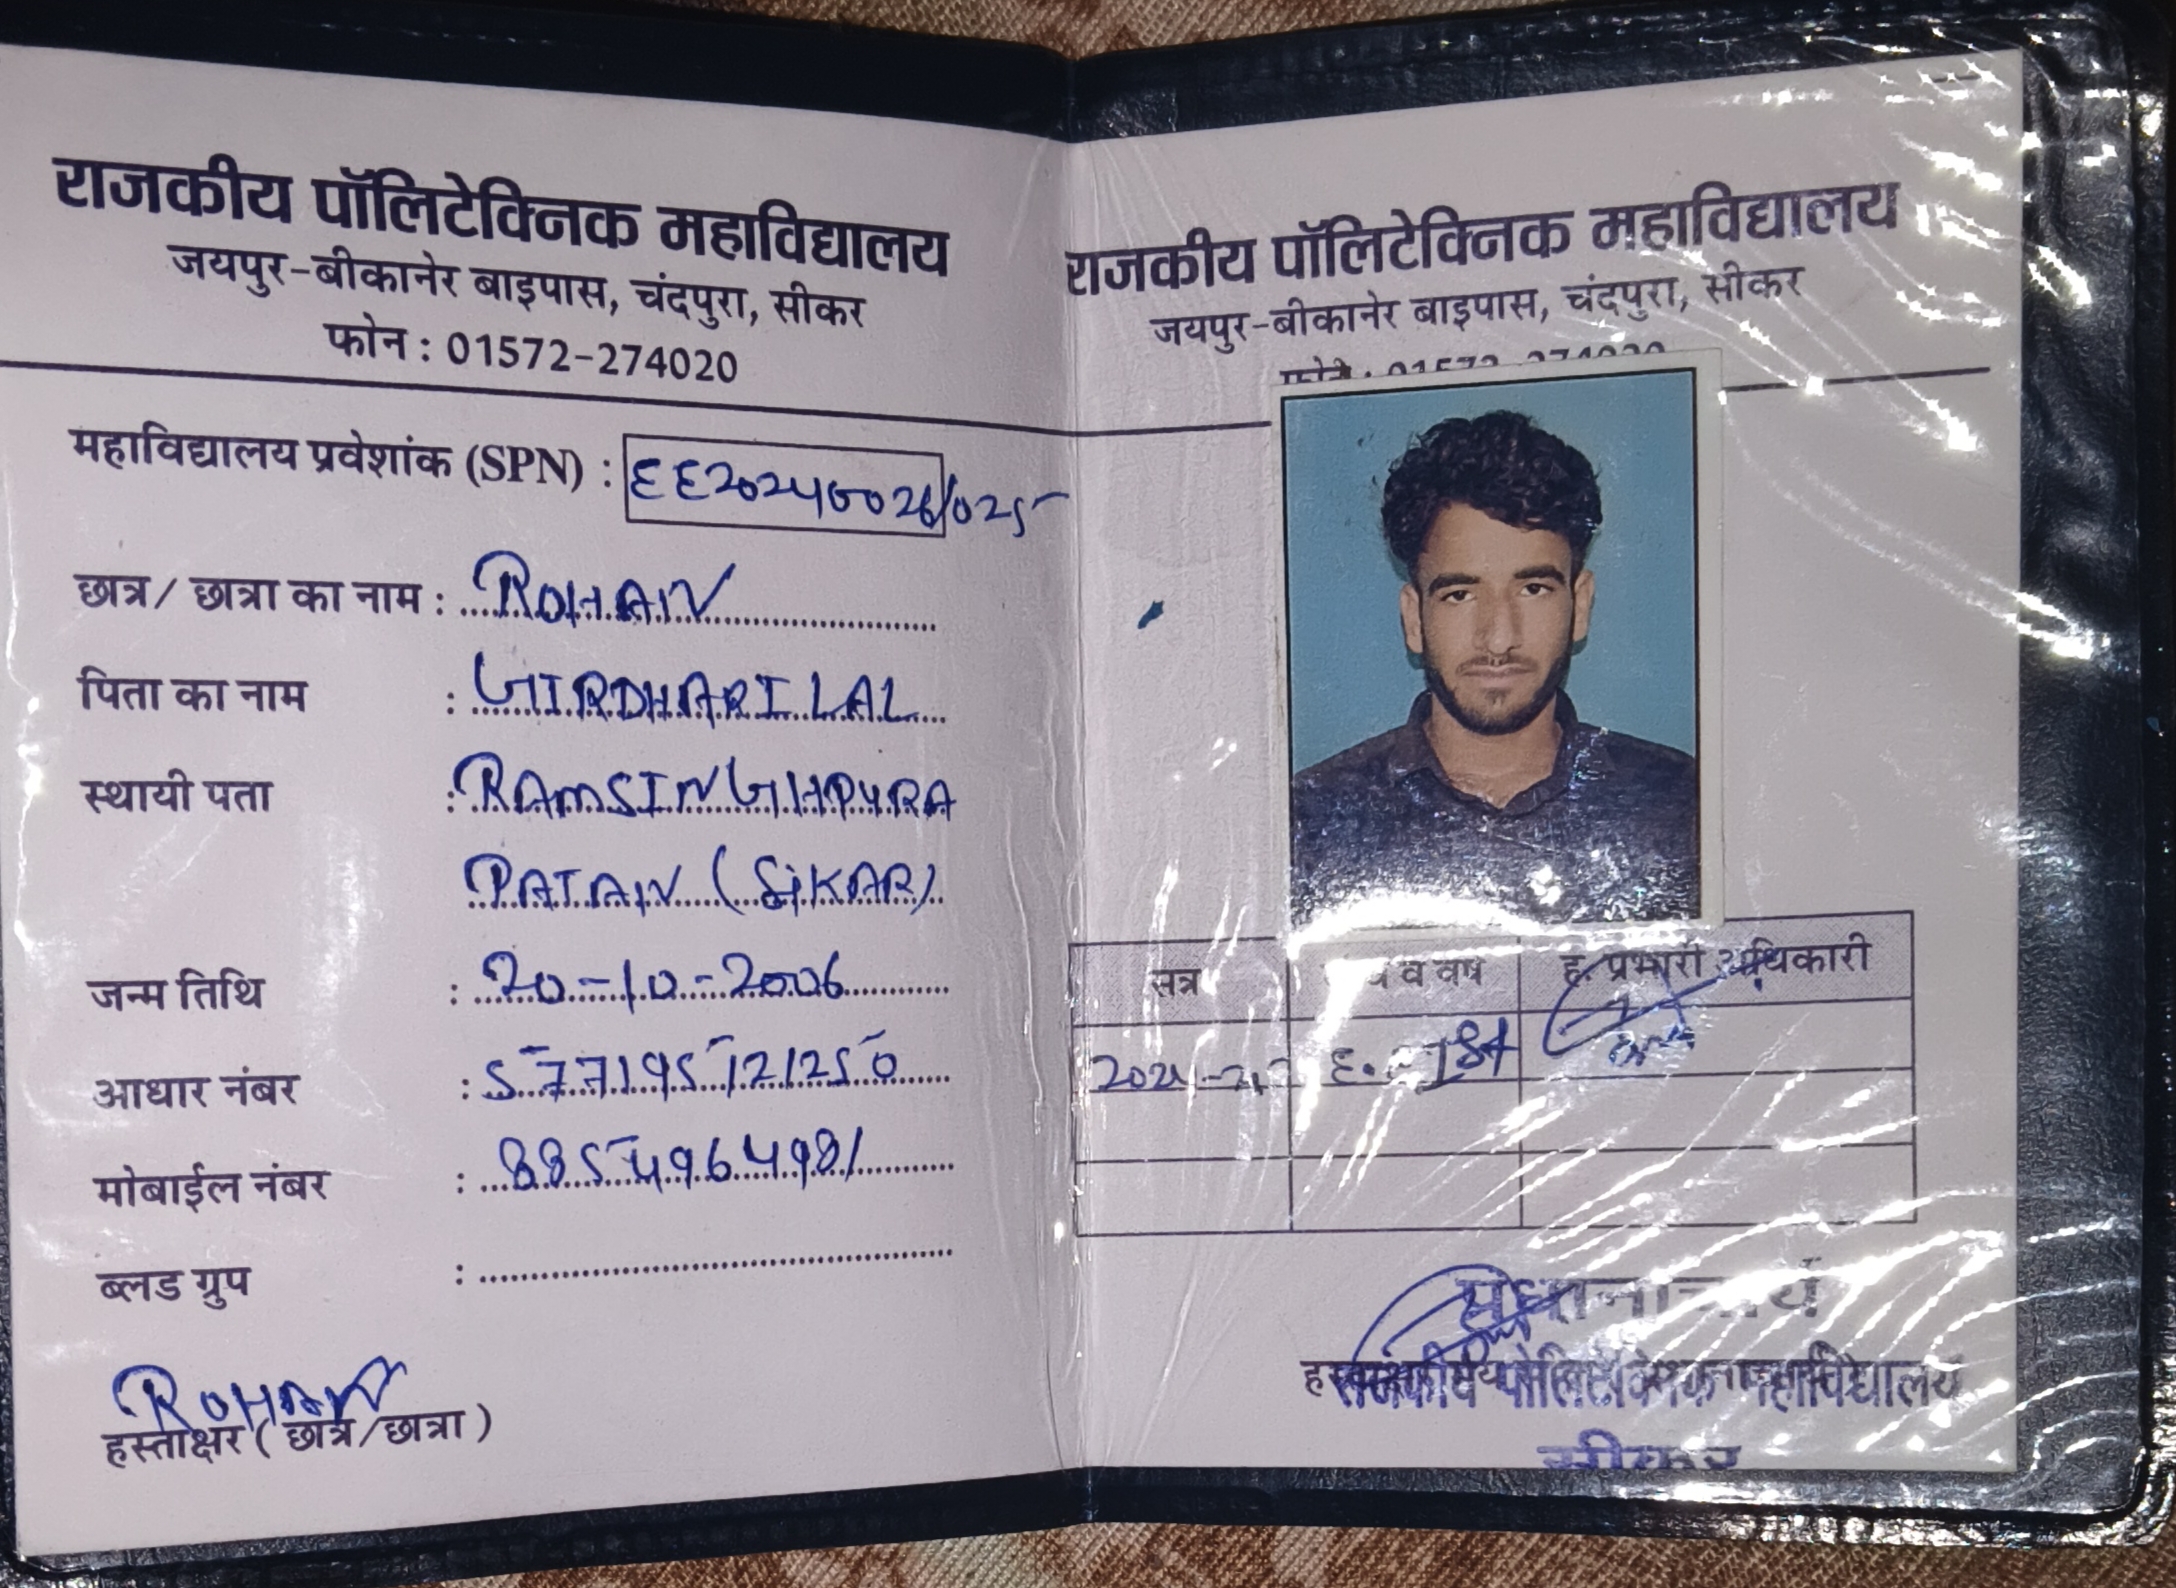 राजकीय पॉलिटेक्निक महाविद्यालय
जयपुर-बीकानेर बाइपास, चंदपुरा, सीकर
फोन : 01572-274020
महाविद्यालय प्रवेशांक (SPN) : EE20240026/025
छात्र/ छात्रा का नाम : ROHAN
पिता का नाम : GIRDHARI LAL
स्थायी पता : RAMSINGHPURA
PATAN (SIKAR)
जन्म तिथि : 20-10-2006
आधार नंबर : 577195121250
मोबाईल नंबर : 8854964981
ब्लड ग्रुप :
ROHAN
हस्ताक्षर ( छात्र/छात्रा )
राजकीय पॉलिटेक्निक महाविद्यालय
जयपुर-बीकानेर बाइपास, चंदपुरा, सीकर
फोन : 01572-274020
सत्र व वर्ष ह. प्रभारी अधिकारी
Ist
प्रधानाचार्य
राजकीय पॉलिटेक्निक महाविद्यालय
सीकर